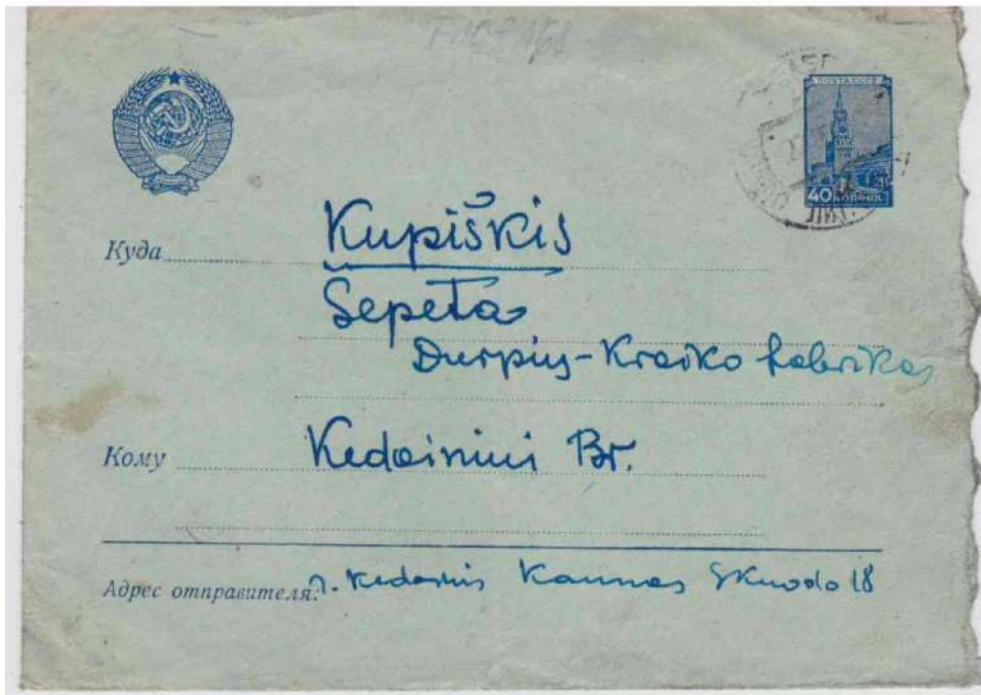 ПОЧТА СССР
40 КОПЕЕК
Куда Kupiškis
Šepeta
Durpių-Kraiko fabrikas
Кому Kedainiui Br.
Адрес отправителя: Kaunas Skuodo 18